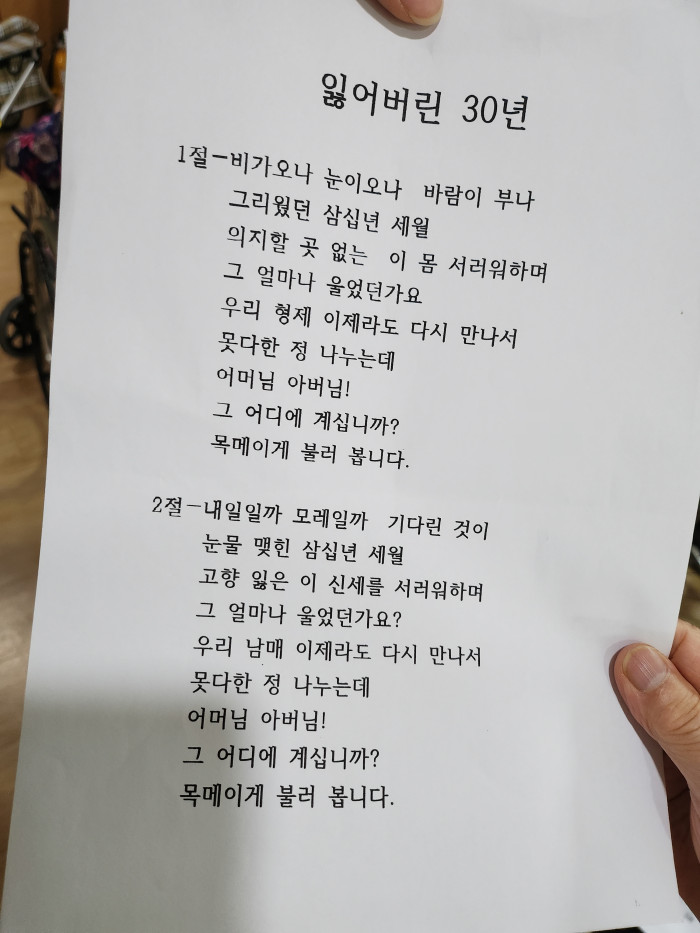 잃어버린 30년
1절-비가오나 눈이오나 바람이 부나
그리웠던 삼십년 세월
의지할 곳 없는 이 몸 서러워하며
그 얼마나 울었던가요
우리 형제 이제라도 다시 만나서
못다한 정 나누는데
어머님 아버님!
그 어디에 계십니까?
목메이게 불러 봅니다.
2절-내일일까 모레일까 기다린 것이
눈물 맺힌 삼십년 세월
고향 잃은 이 신세를 서러워하며
그 얼마나 울었던가요?
우리 남매 이제라도 다시 만나서
못다한 정 나누는데
어머님 아버님!
그 어디에 계십니까?
목메이게 불러 봅니다.